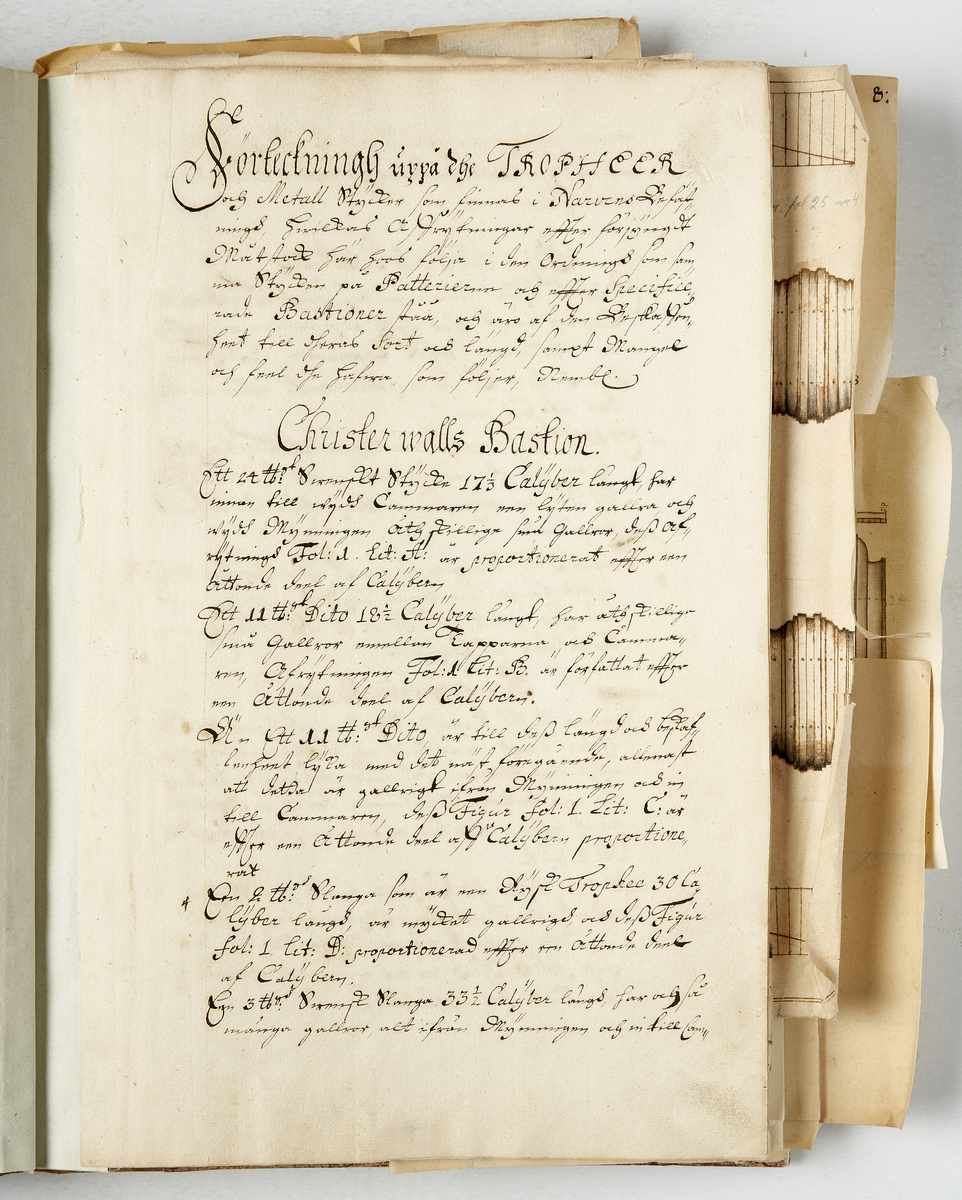 Förteckningh uppå dhe TROPHEER
och Metall Stycker som finnas i Narvens Befäst-
ningh, hwilckas Affrijtningar effter förjungdt
Måtstock här hoos följa i den Ordningh som sam
ma Stycken på Batterierne och effter Specifice,
rade Bastioner stää, och äro af den Beskaffen,
heet till dheras Sort och längd, sampt Mangel
och feel dhe hafwa, som följer, Nembl.
Christerwalls Bastion.
Ett 24 ℔: Swenskt Stycke 17½ Calÿber långt, har
innan till wijdh Cammaren een lijten gallra och
wijdh Mynningen åthskillige små Gallror, deß Af,
rijtningh Fol: 1. Lit: A: är proportionerat effter een
Åttonde deel af Calÿbern
Ett 11 ℔: Dito 18½ Calÿber långt, har åthskillige
små Gallror emellan Tapparna och Camma,
ren, Afrijtningen Fol: 1 Lit: B. är författat effter
een Åttonde deel af Calÿbern.
Än Ett 11 ℔: Dito är till deß längd och beskaf,
fenheet lijka med det näst föregående, allenast
att detta är gallrigt ifrån Mynningen och in
till Cammaren, deß Figur fol: 1. Lit: C: är
effter een Åttonde deel aff Calÿbern proportione,
rat
Een 2 ℔: Slanga som är een Rysk Trophee 30 Ca,
lÿber långh, är mycket gallrigh, och deß Figur
fol: 1. Lit: D: proportionerad effter een Åttonde deel
af Calÿbern.
Een 3 ℔: Swensk Slanga 33½ Calÿber långh har och så
många gallror alt ifrån Mynningen och in till Cam,
8:
fol 25 nr 4